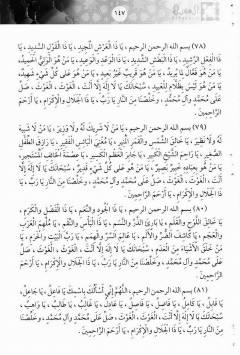 ١٤٧
(٧٨) بسم الله الرحمن الرحيم، يَا ذَا الْعَرْشِ الْمَجِيدِ، يَا ذَا الْقَوْلِ السَّدِيدِ، يَا
ذَا الْفِعْلِ الرَّشِيدِ، يَا ذَا الْبَطْشِ الشَّدِيدِ، يَا ذَا الْوَعْدِ وَالْوَعِيدِ، يَا مَنْ هُوَ الْوَلِيُّ الْحَمِيدُ،
يَا مَنْ هُوَ فَعَّالٌ لِمَا يُرِيدُ، يَا مَنْ هُوَ قَرِيبٌ غَيْرُ بَعِيدٍ، يَا مَنْ هُوَ عَلَى كُلِّ شَيْءٍ شَهِيدٌ،
يَا مَنْ هُوَ لَيْسَ بِظَلَّامٍ لِلْعَبِيدِ، سُبْحَانَكَ يَا لَا إِلَهَ إِلَّا أَنْتَ، الْغَوْثَ، الْغَوْثَ، صَلِّ
عَلَى مُحَمَّدٍ وَآلِ مُحَمَّدٍ، وَخَلِّصْنَا مِنَ النَّارِ يَا رَبِّ، يَا ذَا الْجَلَالِ وَالْإِكْرَامِ، يَا أَرْحَمَ
الرَّاحِمِينَ.
(٧٩) بسم الله الرحمن الرحيم، يَا مَنْ لَا شَرِيكَ لَهُ وَلَا وَزِيرَ، يَا مَنْ لَا شَبِيهَ
لَهُ وَلَا نَظِيرَ، يَا خَالِقَ الشَّمْسِ وَالْقَمَرِ الْمُنِيرِ، يَا مُغْنِيَ الْبَائِسِ الْفَقِيرِ، يَا رَازِقَ الطِّفْلِ
الصَّغِيرِ، يَا رَاحِمَ الشَّيْخِ الْكَبِيرِ، يَا جَابِرَ الْعَظْمِ الْكَسِيرِ، يَا عِصْمَةَ الْخَائِفِ الْمُسْتَجِيرِ،
يَا مَنْ هُوَ بِعِبَادِهِ خَبِيرٌ بَصِيرٌ، يَا مَنْ هُوَ عَلَى كُلِّ شَيْءٍ قَدِيرٌ، سُبْحَانَكَ يَا لَا إِلَهَ إِلَّا
أَنْتَ، الْغَوْثَ، الْغَوْثَ، صَلِّ عَلَى مُحَمَّدٍ وَآلِ مُحَمَّدٍ، وَخَلِّصْنَا مِنَ النَّارِ يَا رَبِّ، يَا
ذَا الْجَلَالِ وَالْإِكْرَامِ، يَا أَرْحَمَ الرَّاحِمِينَ.
(٨٠) بسم الله الرحمن الرحيم، يَا ذَا الْجُودِ وَالنِّعَمِ، يَا ذَا الْفَضْلِ وَالْكَرَمِ،
يَا خَالِقَ اللَّوْحِ وَالْقَلَمِ، يَا بَارِئَ الذَّرِّ وَالنَّسَمِ، يَا ذَا الْبَأْسِ وَالنِّقَمِ، يَا مُلْهِمَ الْعَرَبِ
وَالْعَجَمِ، يَا كَاشِفَ الضُّرِّ وَالْأَلَمِ، يَا عَالِمَ السِّرِّ وَالْهِمَمِ، يَا رَبَّ الْبَيْتِ وَالْحَرَمِ، يَا
مَنْ خَلَقَ الْأَشْيَاءَ مِنَ الْعَدَمِ، سُبْحَانَكَ يَا لَا إِلَهَ إِلَّا أَنْتَ، الْغَوْثَ، الْغَوْثَ، صَلِّ
عَلَى مُحَمَّدٍ وَآلِ مُحَمَّدٍ، وَخَلِّصْنَا مِنَ النَّارِ يَا رَبِّ، يَا ذَا الْجَلَالِ وَالْإِكْرَامِ، يَا أَرْحَمَ
الرَّاحِمِينَ.
(٨١) بسم الله الرحمن الرحيم، اللَّهُمَّ إِنِّي أَسْأَلُكَ بِاسْمِكَ يَا فَاعِلُ، يَا جَاعِلُ،
يَا قَابِلُ، يَا كَامِلُ، يَا فَاصِلُ، يَا وَاصِلُ، يَا عَادِلُ، يَا غَالِبُ، يَا طَالِبُ، يَا وَاهِبُ،
سُبْحَانَكَ يَا لَا إِلَهَ إِلَّا أَنْتَ، الْغَوْثَ، الْغَوْثَ، صَلِّ عَلَى مُحَمَّدٍ وَآلِ مُحَمَّدٍ، وَخَلِّصْنَا
مِنَ النَّارِ يَا رَبِّ، يَا ذَا الْجَلَالِ وَالْإِكْرَامِ، يَا أَرْحَمَ الرَّاحِمِينَ.